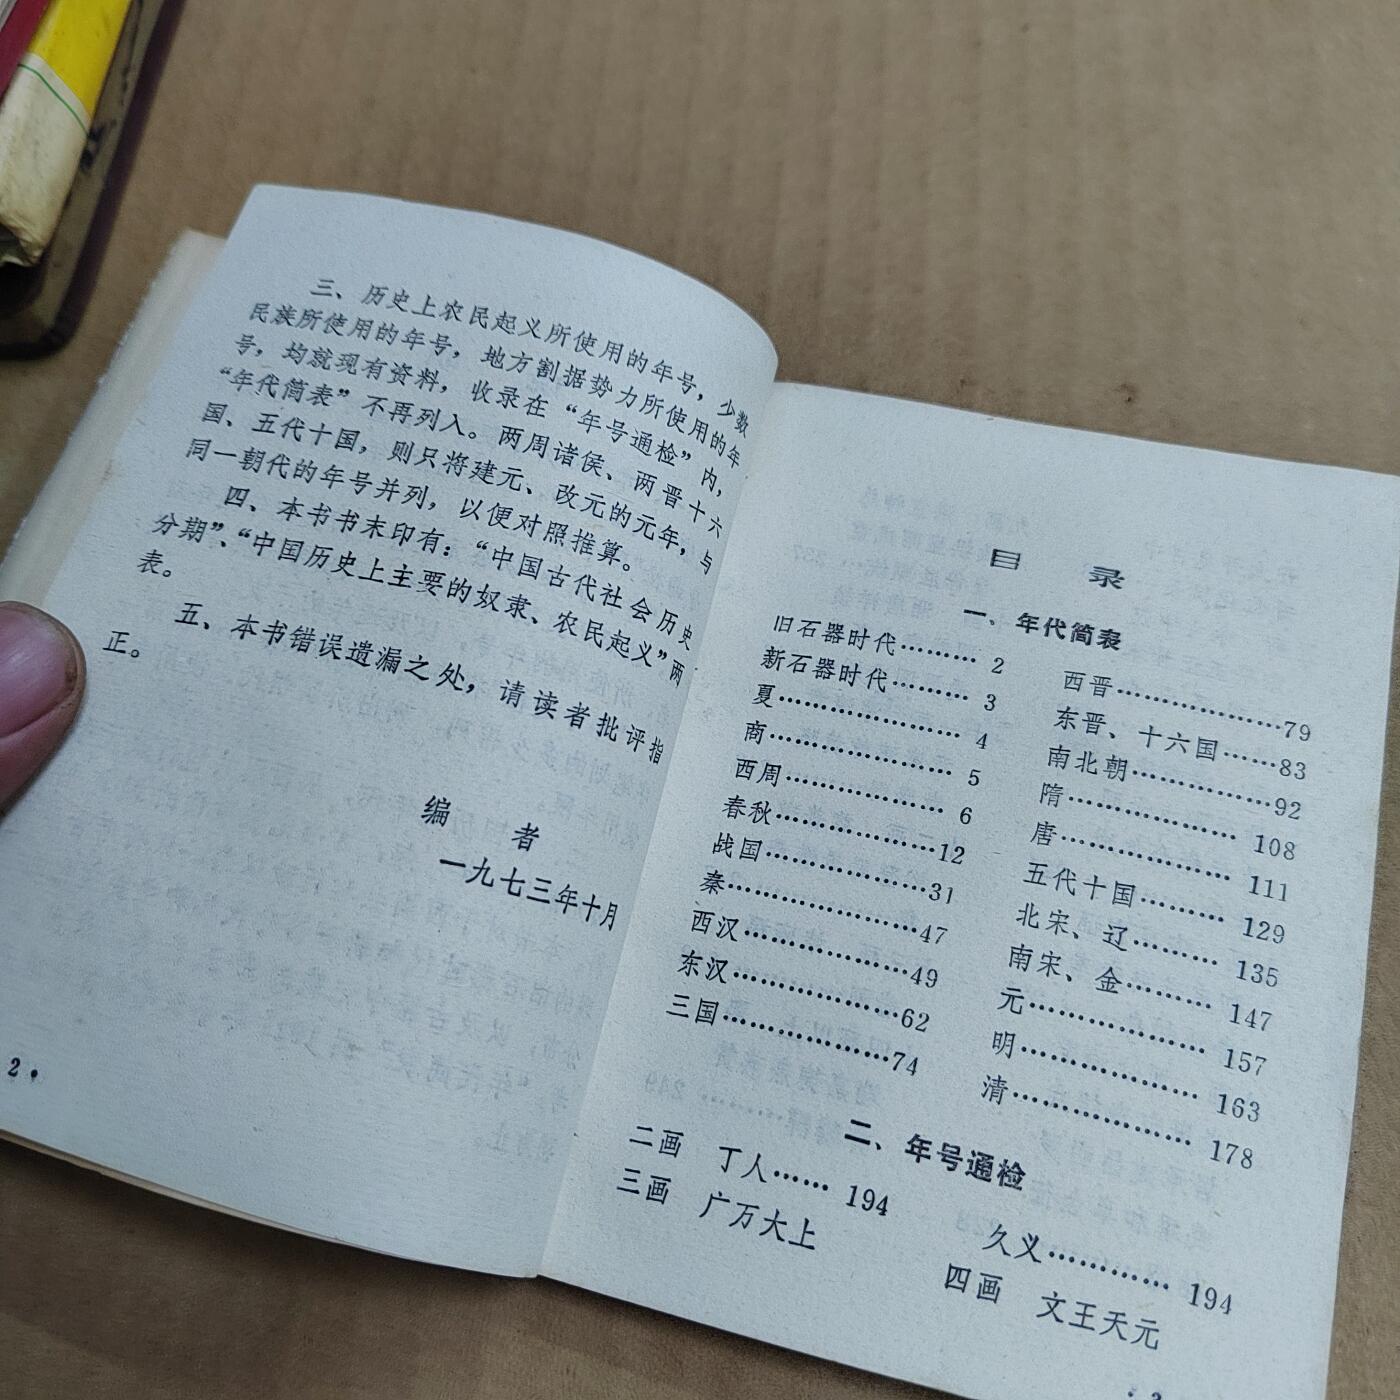 三、历史上农民起义所使用的年号，少数
民族所使用的年号，地方割据势力所使用的年
号，均就现有资料，收录在“年号通检”内，
“年代简表”不再列入。两周诸侯、两晋十六
国、五代十国，则只将建元、改元的元年，与
同一朝代的年号并列，以便对照推算。
四、本书书末印有：“中国古代社会历史
分期”、“中国历史上主要的奴隶、农民起义”两
表。
五、本书错误遗漏之处，请读者批评指
正。
编 者
一九七三年十月
2·
目 录
一、年代简表
旧石器时代……… 2
新石器时代……… 3
夏………………… 4
商………………… 5
西周……………… 6
春秋………………12
战国………………31
秦…………………47
西汉………………49
东汉………………62
三国………………74
西晋………………79
东晋、十六国……83
南北朝……………92
隋……………… 108
唐……………… 111
五代十国……… 129
北宋、辽……… 135
南宋、金……… 147
元……………… 157
明……………… 163
清……………… 178
二、年号通检
二画 丁人…… 194
三画 广万大上
久义………… 194
四画 文王天元